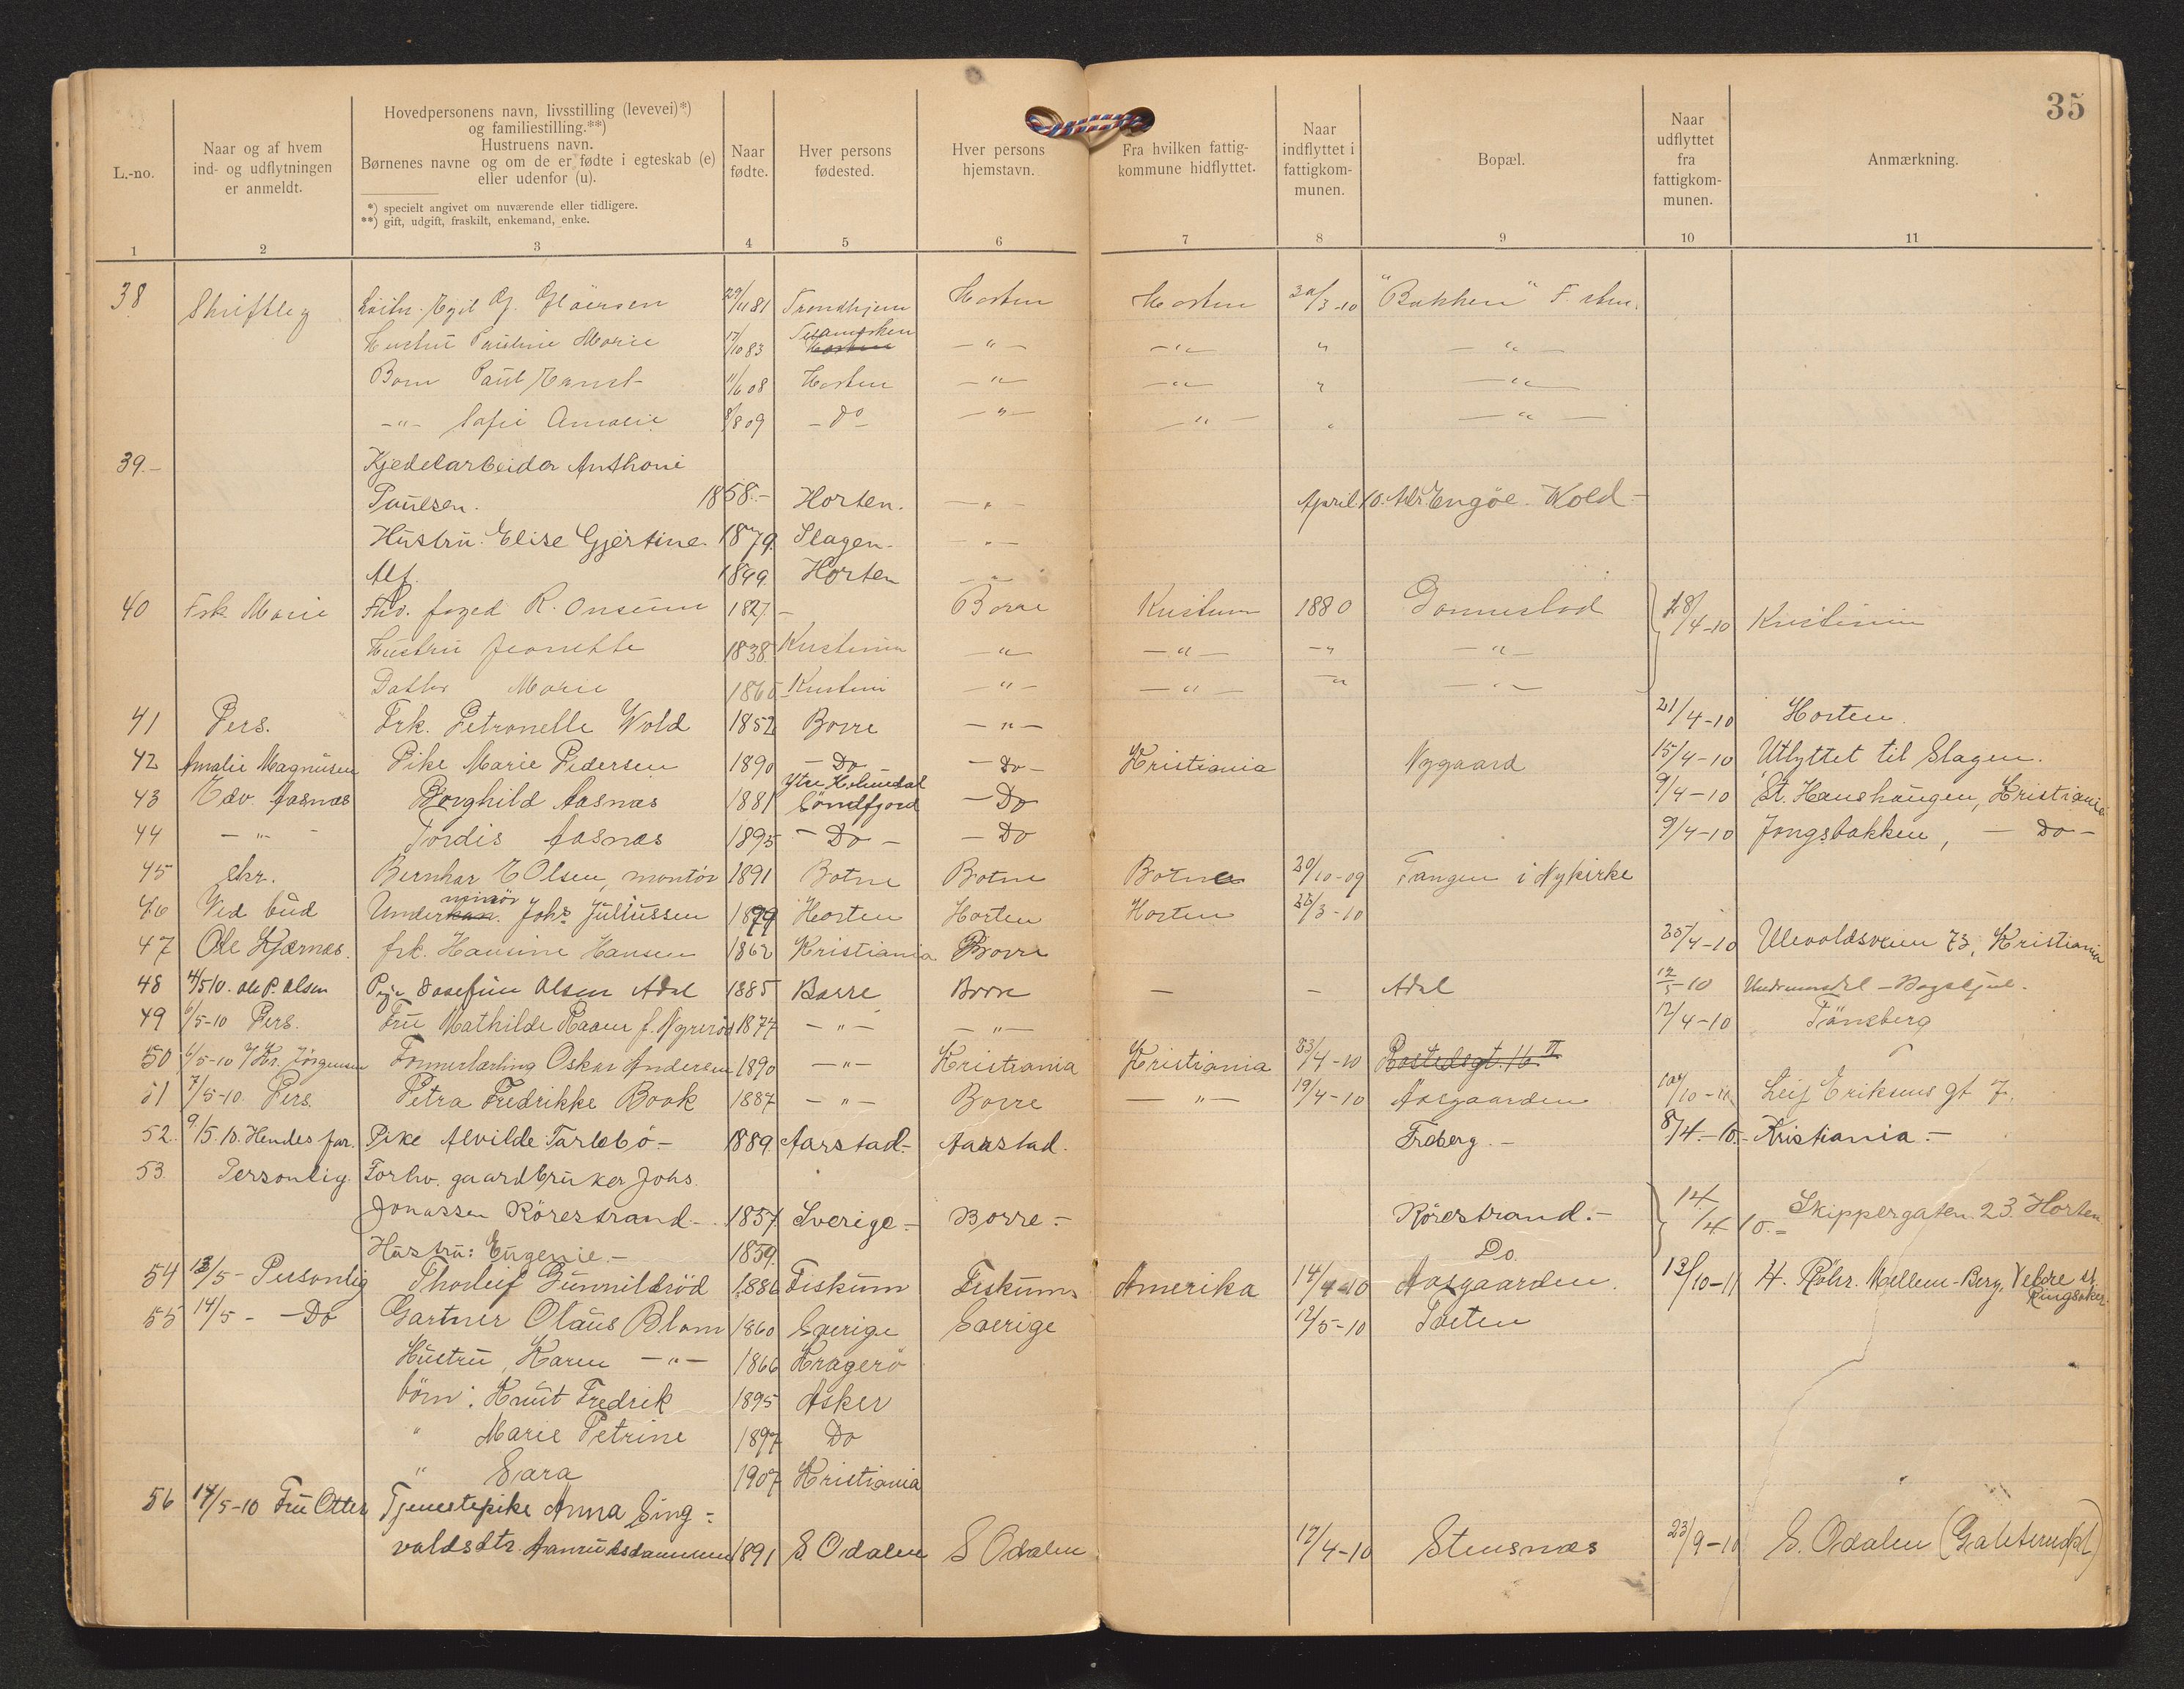 35
L.-no.
Naar og af hvem
ind- og udflytningen
er anmeldt.
Hovedpersonens navn, livsstilling (levevei)*)
og familiestilling.**)
Hustruens navn.
Børnenes navne og om de er fødte i egteskab (e)
eller udenfor (u).
*) specielt angivet om nuværende eller tidligere.
**) gift, udgift, fraskilt, enkemand, enke.
Naar
fødte.
Hver persons
fødested.
Hver persons
hjemstavn.
Fra hvilken fattig-
kommune hidflyttet.
Naar
indflyttet i
fattigkom-
munen.
Bopæl.
Naar
udflyttet
fra
fattigkom-
munen.
Anmærkning.
1 2 3 4 5 6 7 8 9 10 11
38 Skriftleg G. Gløersen 29/11 81 Trondhjem Horten Horten 30/3-10 "Bakken"
Hustru Pauline Marie 17/10 83 Horten -"- -"- " -"-
Born Paul Ernst 11/6 08 Horten -"- -"- " -"-
-"- Sofie Amalie 8/8 09 -Do- -"- -"- " -"-
39.- Kjedelarbeider Anthoni
Paulsen. 1858.- Horten. -"- April 10. Engöe. Wold-
Hustru: Elise Gjertine. 1879. Slagen- -"-
Alf. 1899. Horten -"-
40 Frk. Marie Fhv. foged R. Onsum 1827 - Borre Kristiania 1880 28/4-10 Kristiania
Hustru Jeanette 1838 Kristiania -"- -"- -" -"-
Datter Marie 1865 Kristiania -"- -"- -" -"-
41 Pers. Frk. Petronelle Wold 1852 Borre -"- 21/4-10 Horten.
42 Amalie Magnusen Pike Marie Pedersen 1890 -Do -Do- Kristiania Nygaard 15/4-10 Utflyttet til Slagen.
43 Edv. Aasnæs Borghild Aasnæs 1881 Ytre Holmedal Söndfjord -Do 9/4-10 St. Hanshaugen, Kristiania
44 -"- Tordis Aasnæs 1895 -Do- -Do 9/4-10 Jongsbakken, -Do-
45 skr. Bernhar E Olsen, montör 1891 Botne Botne Botne 20/10-09 Tangen i Nykirke
46 Ved bud Underminör Johs Juliussen 1879 Horten Horten Horten 22/3-10
47 Ole Kjærnæs. frk. Hansine Hansen 1862 Kristiania Borre 25/4-10 Ulevoldsveien 73, Kristiania
48 4/5 10. Ole P. Olsen Pige Josefine Olsen Adal 1885 Borre Borre - - Adal 12/5-10
49 6/5-10 Pers. Fru Mathilde Raaen f. Nyreröd 1877 -"- -"- 12/4-10 Tönsberg
50 6/5-10 Kr. Jörgensen Formerlærling Oskar Andersen 1890 -"- Kristiania Kristiania 23/4-10 Rostedsgt. 16 II
51 7/5-10 Pers. Petra Fredrikke Book 1887 -"- Borre -"- 19/4-10 Aasgaarden Leif Eriksens gt 7.
52. 9/5. 10. Hendes far. Pike Alvilde Tarlebö- 1889. Aarstad.- Aarstad. Froberg.- 8/4.-10.- Kristiania.-
53 Personlig. Forhv. gaardbruker Johs.
Jonassen Rörestrand- 1857. Sverige.- Borre.- Rörestrand.- 14./4 10.- Skippergaten. 23. Horten
Hustru: Eugenie.- 1859. Do.
54 13/5- Personlig Thorleif Gunnildröd 1886 Fiskum Fiskum Amerika 14/4-10 Aasgaarden. 13/10-11
Ringsaker.
55 14/5- -Do Gartner Olaus Blom 1860 Sverige Sverige 12/5-10 Tveten
Hustru, Karen -"- 1866 Kragerö
börn: Knut Fredrik 1895 Asker
" Marie Petrine 1897 Do
" Sara 1907 Kristiania
56 14/5-10 Fru Otter Tjenestepike Anna Sing-
valdsdtr. 1891 S. Odalen S Odalen 12/4-10 Stensnæs 23/9-10 S. Odalen